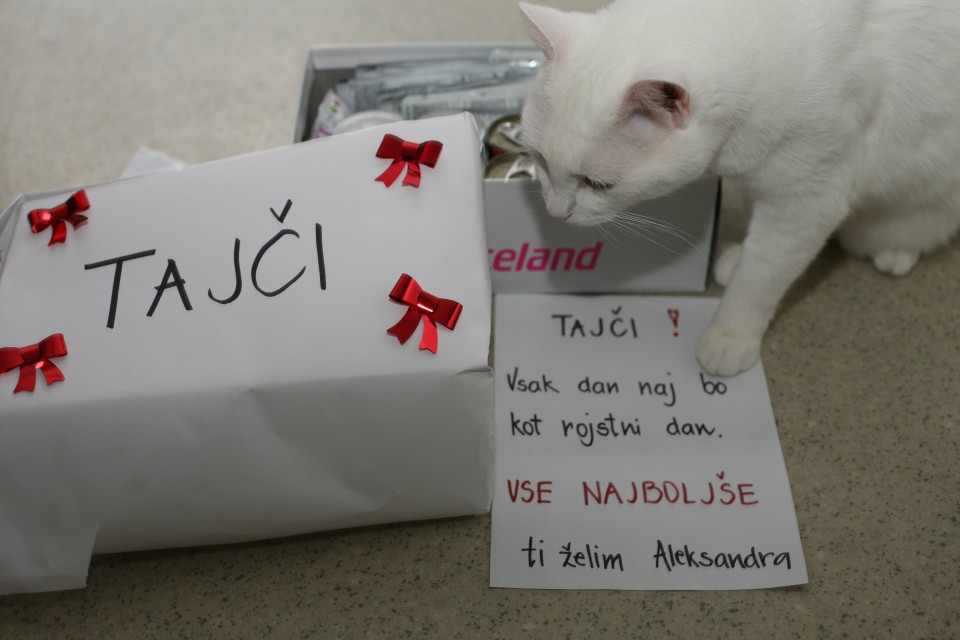 TAJČI
eland
TAJČI !
Vsak dan naj bo
kot rojstni dan.
VSE NAJBOLJŠE
ti želim Aleksandra